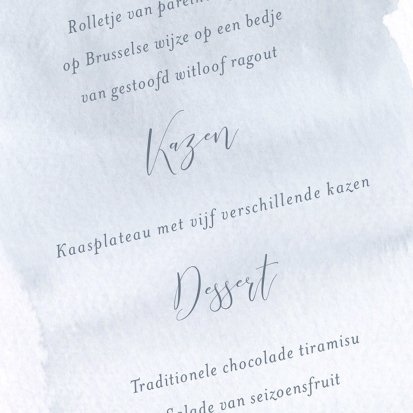 Rolletje van
op Brusselse wijze op een bedje
van gestoofd witloof ragout
Kazen
Kaasplateau met vijf verschillende kazen
Dessert
Traditionele chocolade tiramisu
Salade van seizoensfruit